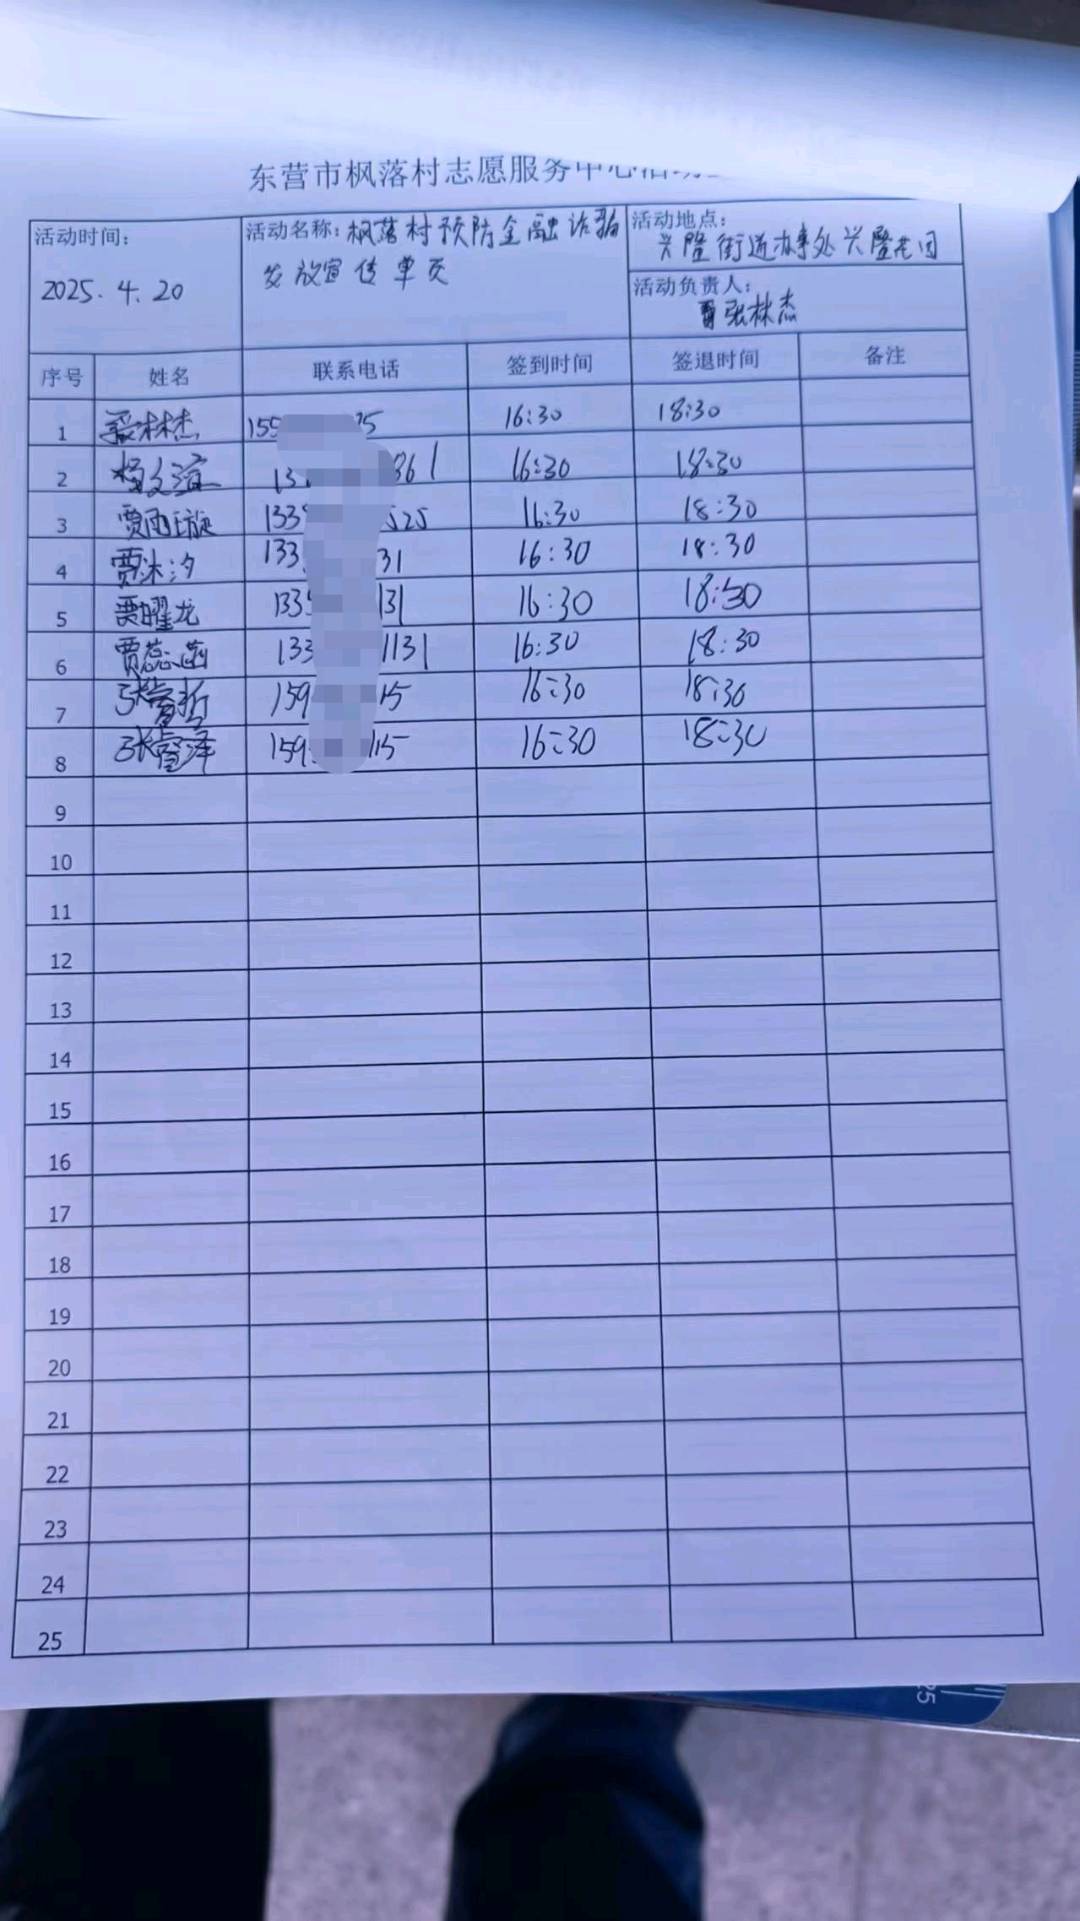 东营市枫落村志愿服务中心活动
活动时间: 2025.4.20
活动名称: 枫落村预防金融诈骗
发放宣传单页
活动地点: 兴隆街道办事处兴隆花园
活动负责人: 张林杰
序号 姓名 联系电话 签到时间 签退时间 备注
1 张林杰 155 35 16:30 18:30
2 杨文滢 131 861 16:30 18:30
3 贾雨璇 133 525 16:30 18:30
4 贾沐汐 133 31 16:30 18:30
5 贾曜龙 133 131 16:30 18:30
6 贾蕊菡 133 1131 16:30 18:30
7 张 159 15 16:30 18:30
8 张 159 115 16:30 18:30
9
10
11
12
13
14
15
16
17
18
19
20
21
22
23
24
25
25